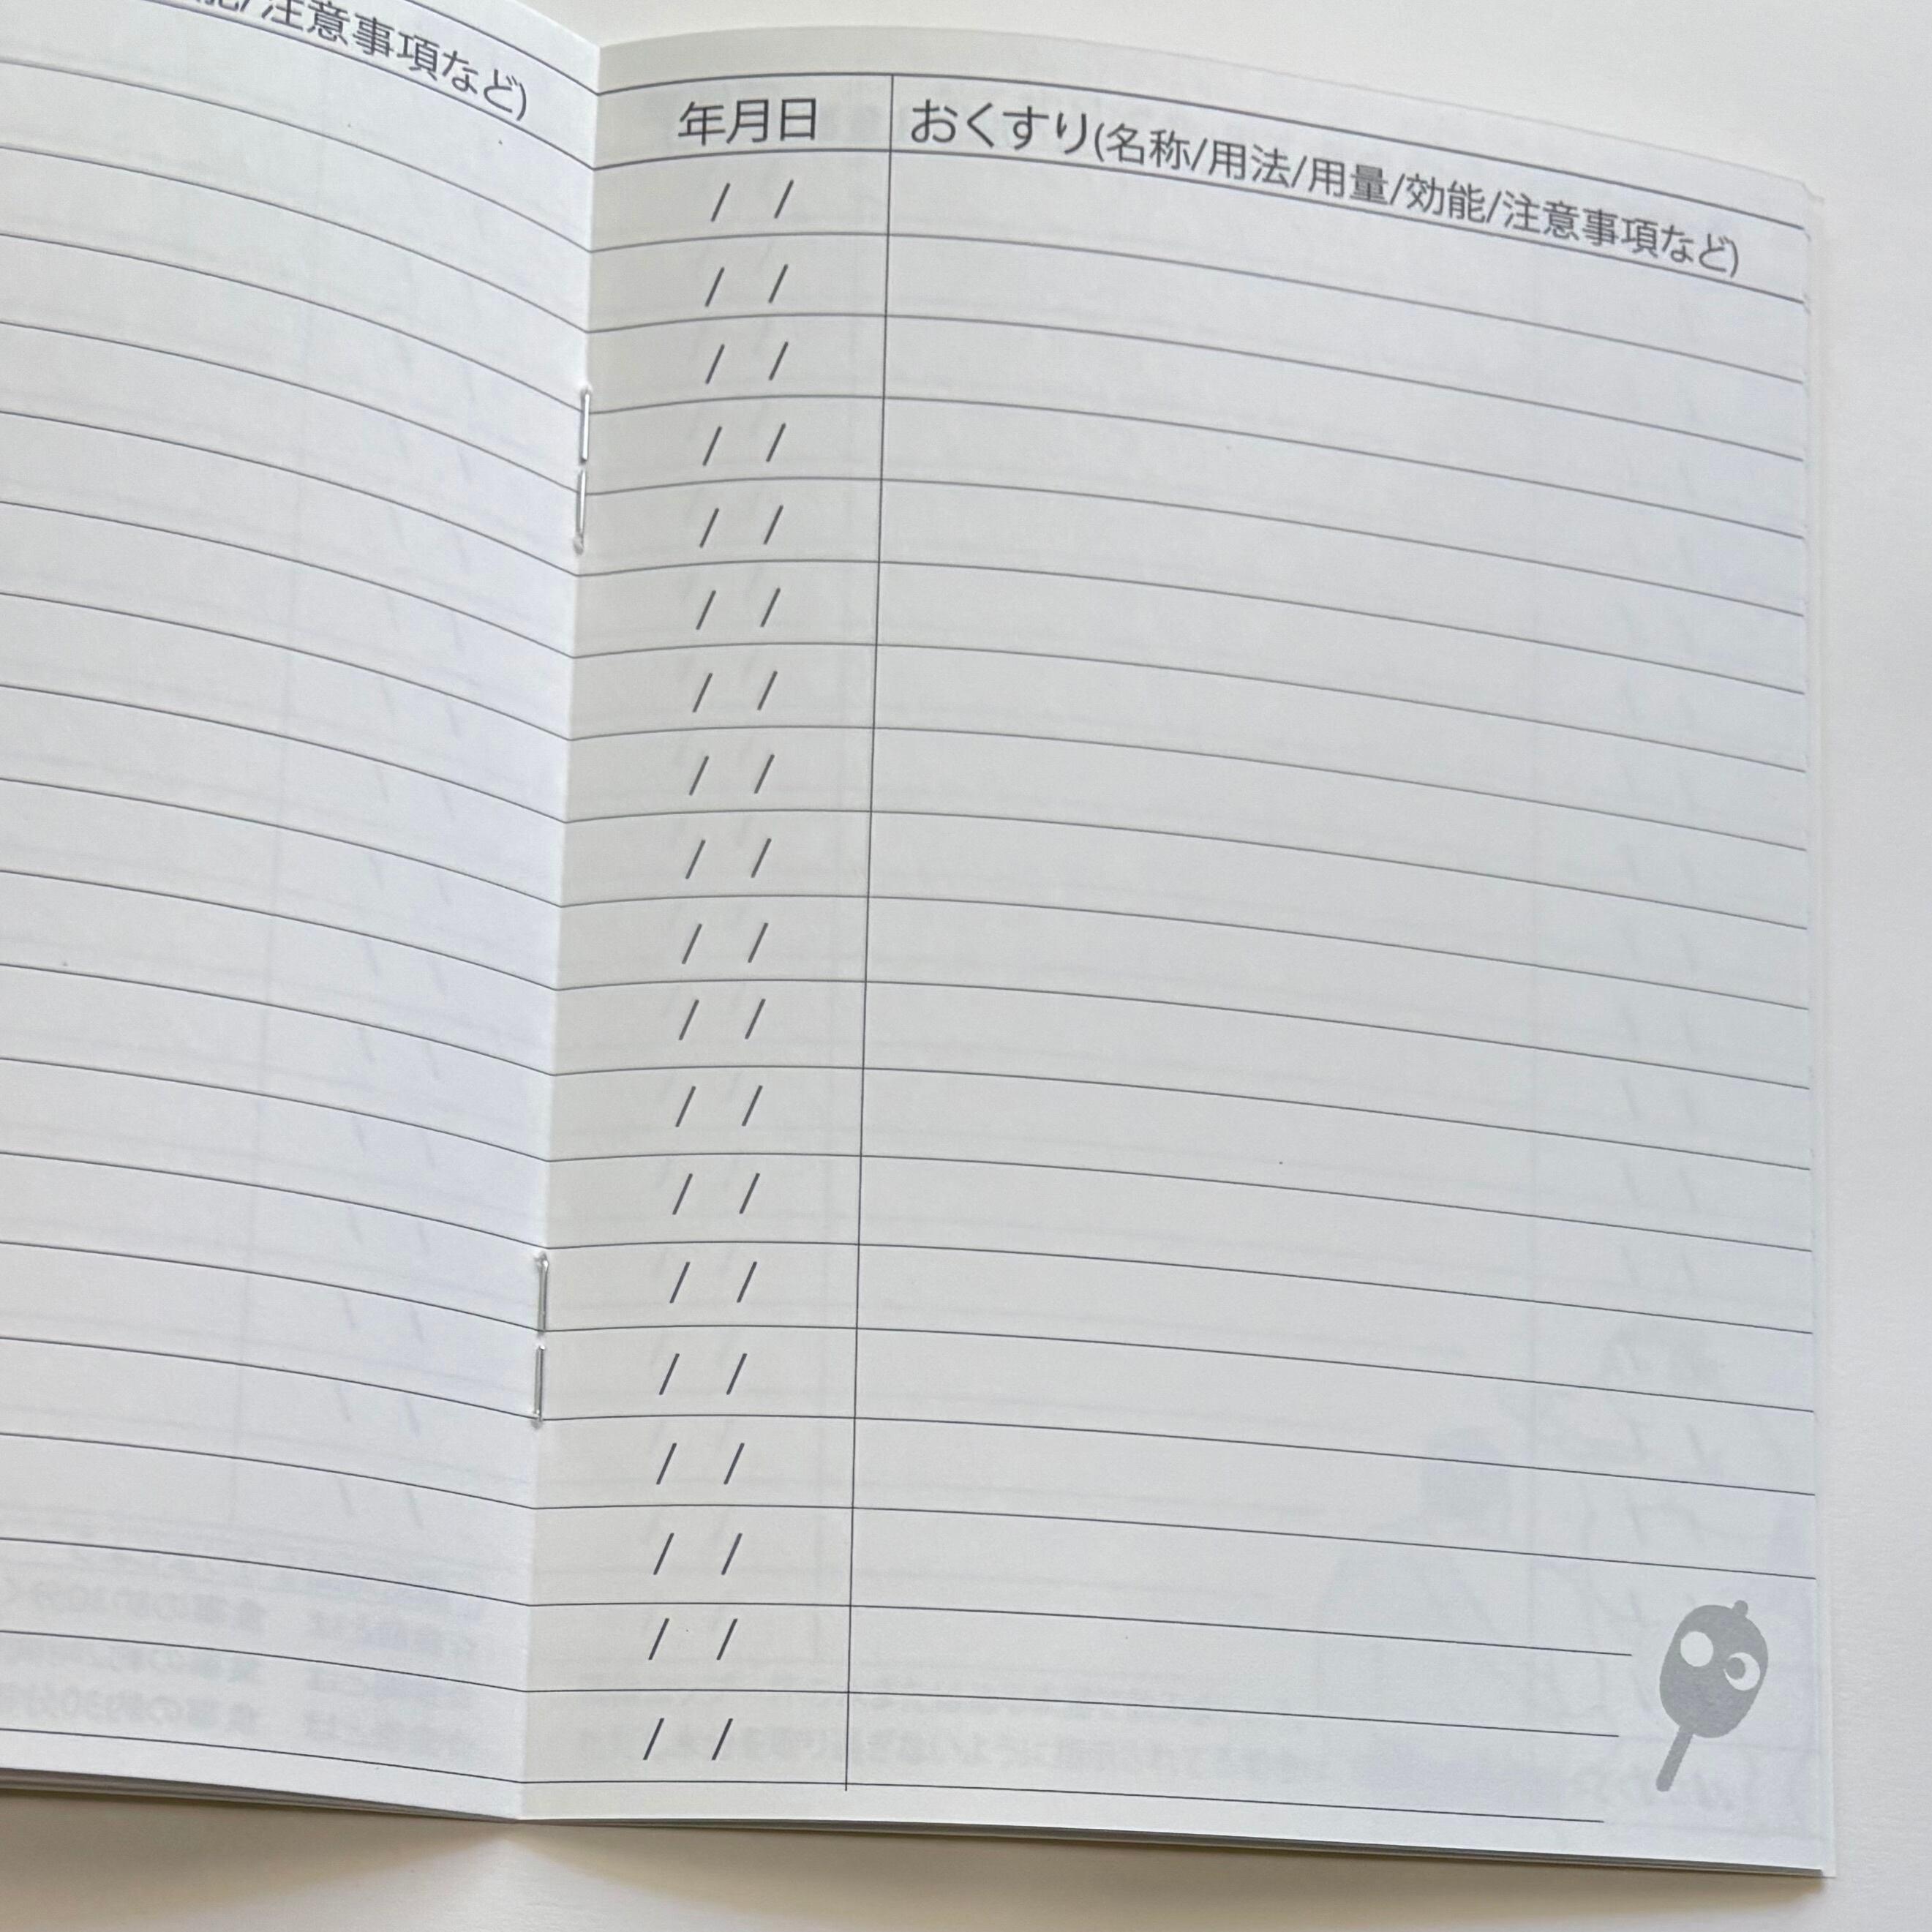 注意事項など)
年月日 おくすり(名称/用法/用量/効能/注意事項など)
/ /
/ /
/ /
/ /
/ /
/ /
/ /
/ /
/ /
/ /
/ /
/ /
/ /
/ /
/ /
/ /
/ /
/ /
/ /